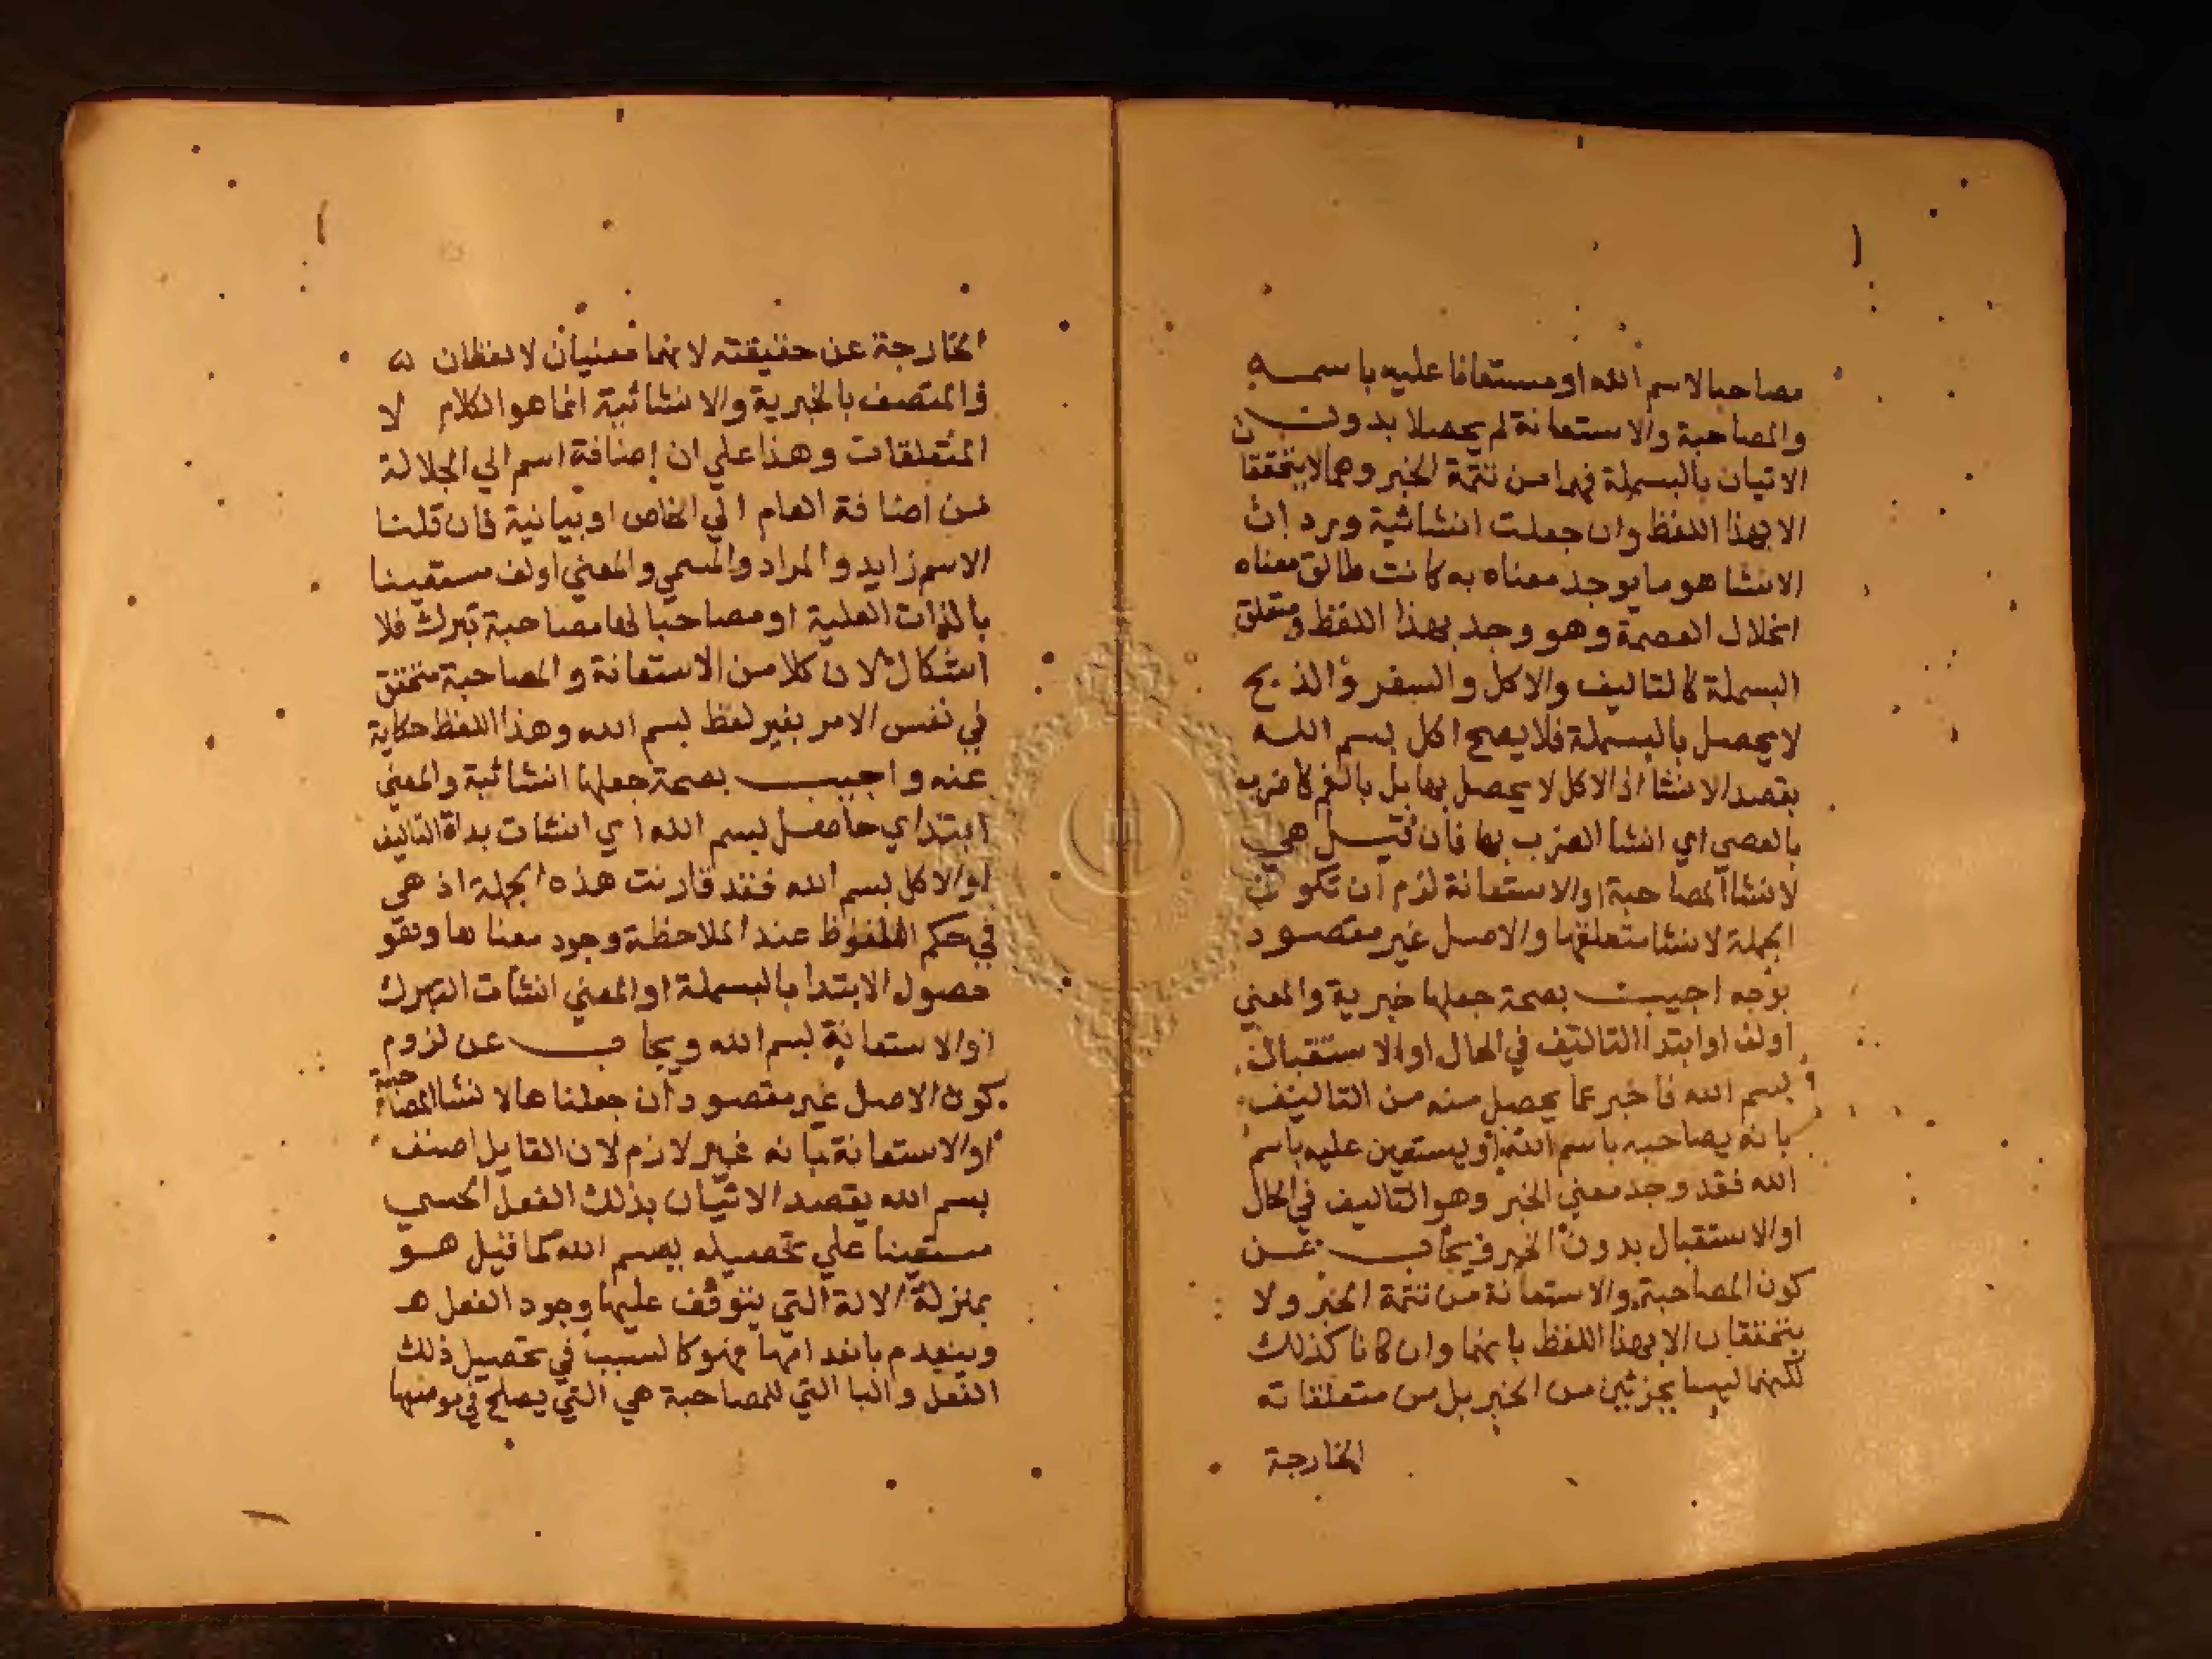 مصاحبا لاسم الله او مستعانا عليه باسمه
والمصاحبة والاستعانة لم يحصلا بدون
الاتيان بالبسملة فهما من تتمة الخبر وهما لا يتحققان
الا بهذا اللفظ وان جعلت انشائية ورد ان
الانشا هو ما يوجد معناه به كانت طالق معناه
انحلال العصمة وهو وجد بهذا اللفظ ومتعلق
البسملة كالتاليف والاكل والسفر والذبح
لا يحصل بالبسملة فلا يصح اكل بسم الله
بقصد الانشا اذ الاكل لا يحصل بها بل بالفم كاضرب
بالعصي اي انشا الضرب بها فان قيل هي
لانشا المصاحبة او الاستعانة لزم ان تكون
الجملة لانشا متعلقها والاصل غير مقصود
بوجه اجيب بصحة جعلها خبرية والمعني
اولف او ابتدا التاليف في الحال او الاستقبال
بسم الله فاخبر عما يحصل منه من التاليف
بانه يصاحبه باسم الله او يستعين عليه باسم
الله فقد وجد معني الخبر وهو التاليف في الحال
او الاستقبال بدون الخبر ويجاب عن
كون المصاحبة والاستعانة من تتمة الخبر ولا
يتحققان الا بهذا اللفظ بانهما وان كانا كذلك
لكنهما ليسا بجزئين من الخبر بل من متعلقاته
الخارجة
الخارجة عن حقيقته لانهما معنيان لا لفظان
والمتصف بالخبرية والانشائية انما هو الكلام لا
المتعلقات وهذا علي ان إضافة اسم الي الجلالة
من اضافة العام الي الخاص او بيانية فان قلنا
الاسم زايد والمراد والمسمي والمعني اولف مستعينا
بالذات العلية او مصاحبا لها مصاحبة تبرك فلا
اشكال لان كلا من الاستعانة والمصاحبة متحقق
في نفس الامر بغير لفظ بسم الله وهذا اللفظ حكاية
عنه واجيب بصحة جعلها انشائية والمعني
ابتداي حاصل بسم الله اي انشات بداة التاليف
او الاكل بسم الله فقد قارنت هذه الجملة اذ هي
في حكم الملفوظ عند الملاحظة وجود معناها وهو
حصول الابتدا بالبسملة او المعني انشات التبرك
او الاستعانة بسم الله ويجاب عن لزوم
كون الاصل غير مقصود ان جعلناها لانشا المصاحبة
او الاستعانة بانه غير لازم لان القايل اصنف
بسم الله يقصد الاتيان بذلك الفعل الحسي
مستعينا علي تحصيله ببسم الله كما قيل هو
بمنزلة الالة التي يتوقف عليها وجود الفعل
وينعدم بانعدامها فهو كالسبب في تحصيل ذلك
الفعل والبا التي للمصاحبة هي التي يصلح في موضعها